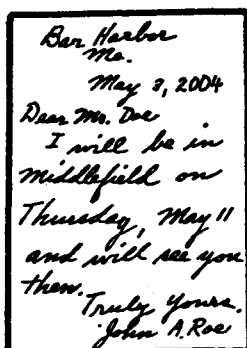 Bar Harbor
Me.
May 3, 2004
Dear Mr. Doe
I will be in
Middlefield on
Thursday, May 11
and will see you
then.
Truly yours.
John A. Roe